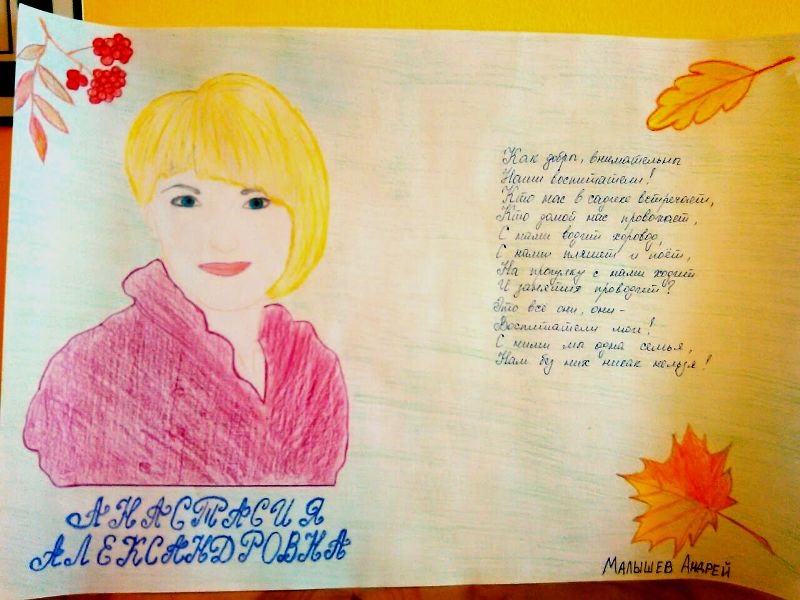 Как добры, внимательны
Наши воспитатели!
Кто нас в садике встречает,
Кто домой нас провожает,
С нами водит хоровод,
С нами пляшет и поёт,
На прогулку с нами ходит
И занятия проводит?
Это всё они, они -
Воспитатели мои!
С ними мы одна семья,
Нам без них никак нельзя!
АНАСТАСИЯ
АЛЕКСАНДРОВНА
МАЛЫШЕВ АНДРЕЙ